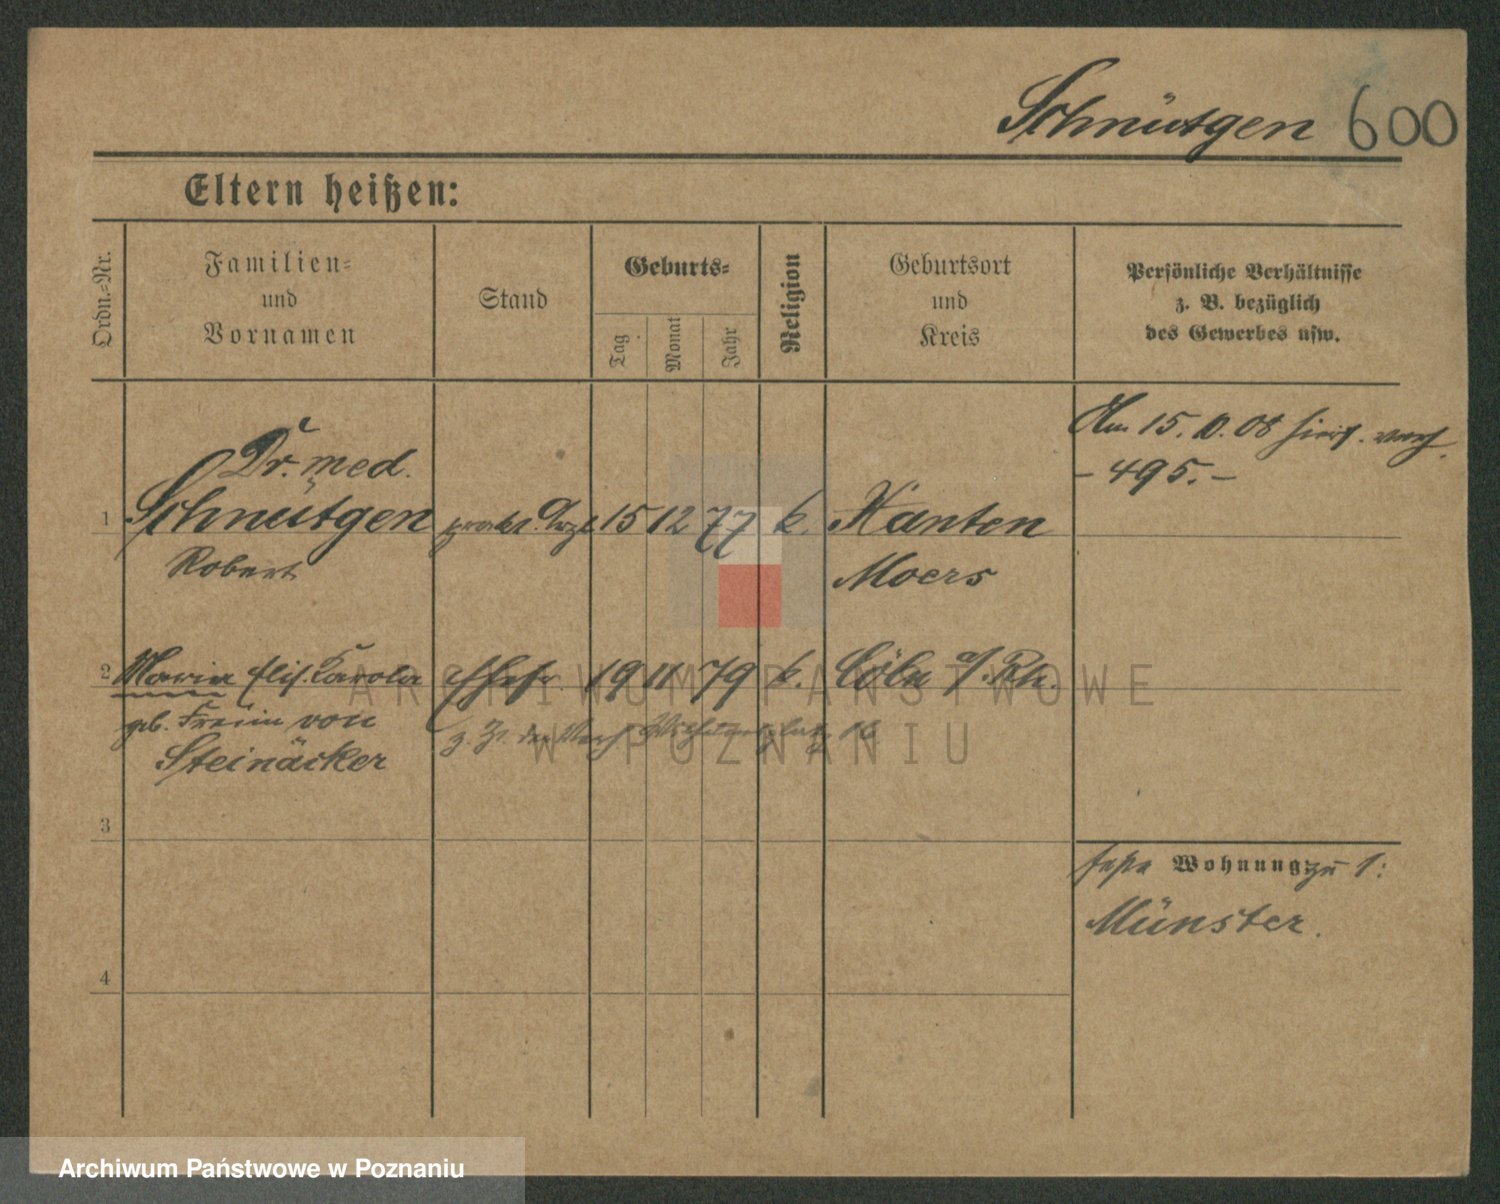 Schnütgen 600
Eltern heißen:
Ordn.-Nr.
Familien-
und
Vornamen
Stand
Geburts-
Tag
Monat
Jahr
Religion
Geburtsort
und
Kreis
Persönliche Verhältnisse
z. B. bezüglich
des Gewerbes usw.
Am 15. 10. 08 hierf. verh.
- 495. -
Dr. med.
1 Schnütgen prakt. Arzt 15 12 77 k. Xanten
Robert
Moers
2 Maria Elis. Karola Ehefr. 19 11 79 k. Cöln a/Rh.
geb. Freiin von
z. Zt.
16
Steinäcker
3
feste Wohnung zu 1:
Münster.
4
ARCHIWUM PAŃSTWOWE
W POZNANIU
Archiwum Państwowe w Poznaniu